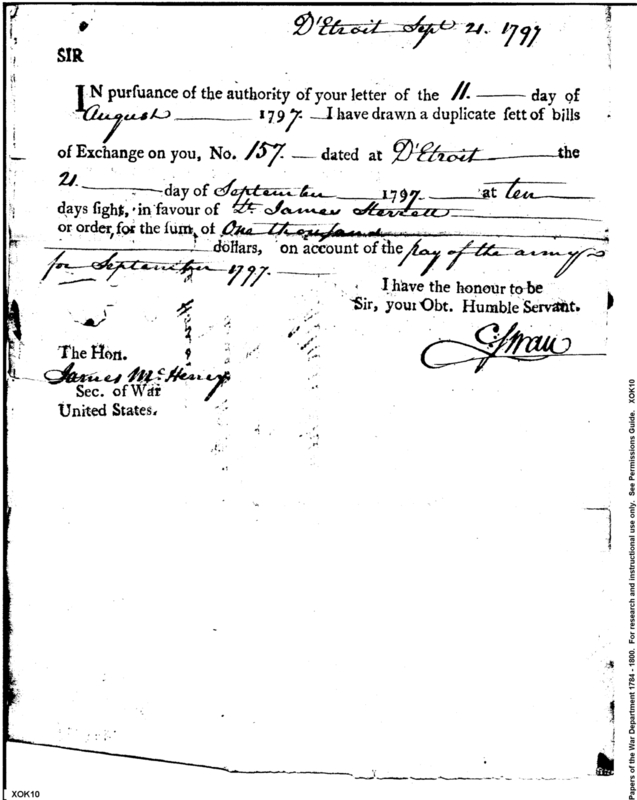 D'Etroit Sept 21. 1797
SIR
IN pursuance of the authority of your letter of the 11. day of
August 1797. I have drawn a duplicate sett of bills
of Exchange on you, No. 157. dated at D'Etroit the
21. day of September 1797. at ten
days sight, in favour of Lt. James
or order, for the sum, of One thousand
dollars, on account of the pay of the army
for September 1797.
I have the honour to be
Sir, your Obt. Humble Servant.
C Swan
The Hon.
James McHenry
Sec. of War
United States.
XOK10
Papers of the War Department 1784 - 1800. For research and instructional use only. See Permissions Guide. XOK10